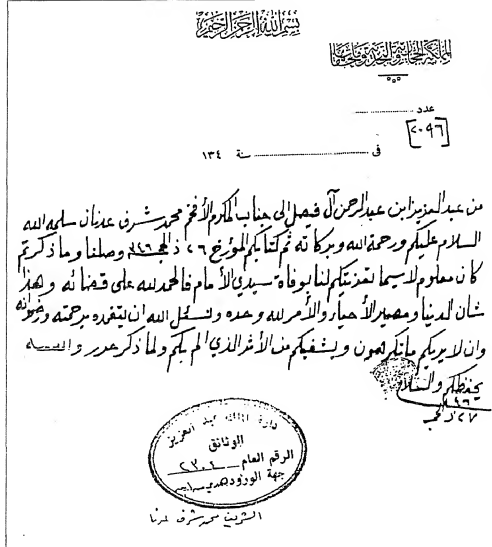 بسم الله الرحمن الرحيم
المملكة الحجازية والنجدية وملحقاتها
عدد
[٢٠٩٦]
في سنة ١٣٤
من عبد العزيز ابن عبد الرحمن آل فيصل الى جناب المكرم الأفخم محمد شرف عدنان سلمه الله
السلام عليكم ورحمة الله وبركاته ثم كتابكم المؤرخ ٢٦ ذ الحجه وصلنا وما ذكرتم
كان معلوم لا سيما تعزيتكم لنا بوفاة سيدي الأمام فالحمد لله على قضائه وهذا
شان الدنيا ومصير الأخيار والأمر لله وحده ونسئل الله ان يتغمده برحمته ورضوانه
وان لا يريكم ما تكرهون ويشفيكم من الأثر الذي الم بكم ولما ذكر حرر والله
يحفظكم والسلام
٢٧ ذ الحجه
دارة الملك عبد العزيز
الوثائق
الرقم العام ٢٣٠٤
جهة الورود
الشريف محمد شرف